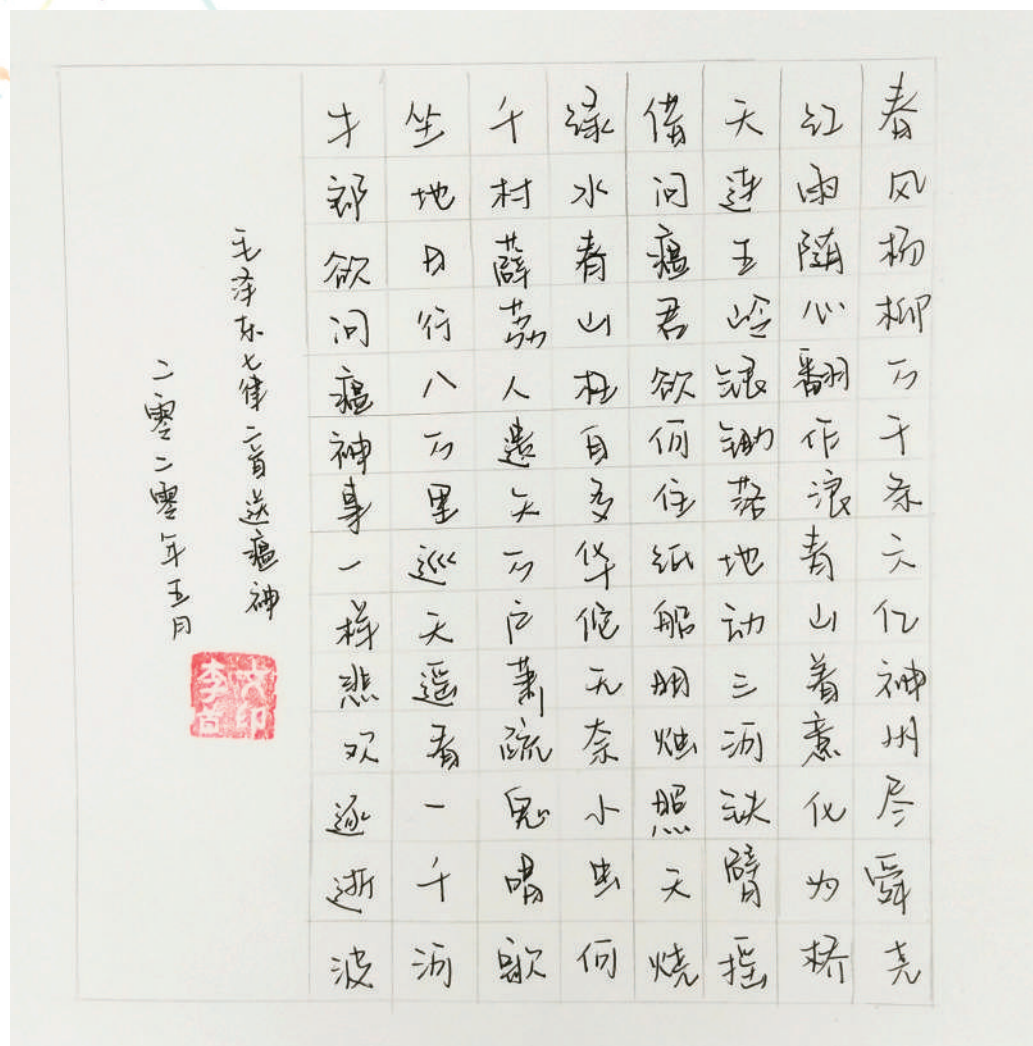 春风杨柳万千条六亿神州尽舜尧
红雨随心翻作浪青山着意化为桥
天连五岭银锄落地动三河铁臂摇
借问瘟君欲何往纸船明烛照天烧
绿水青山枉自多华佗无奈小虫何
千村薜荔人遗矢万户萧疏鬼唱歌
坐地日行八万里巡天遥看一千河
牛郎欲问瘟神事一样悲欢逐逝波
毛泽东七律二首送瘟神
二零二零年五月
文印
李